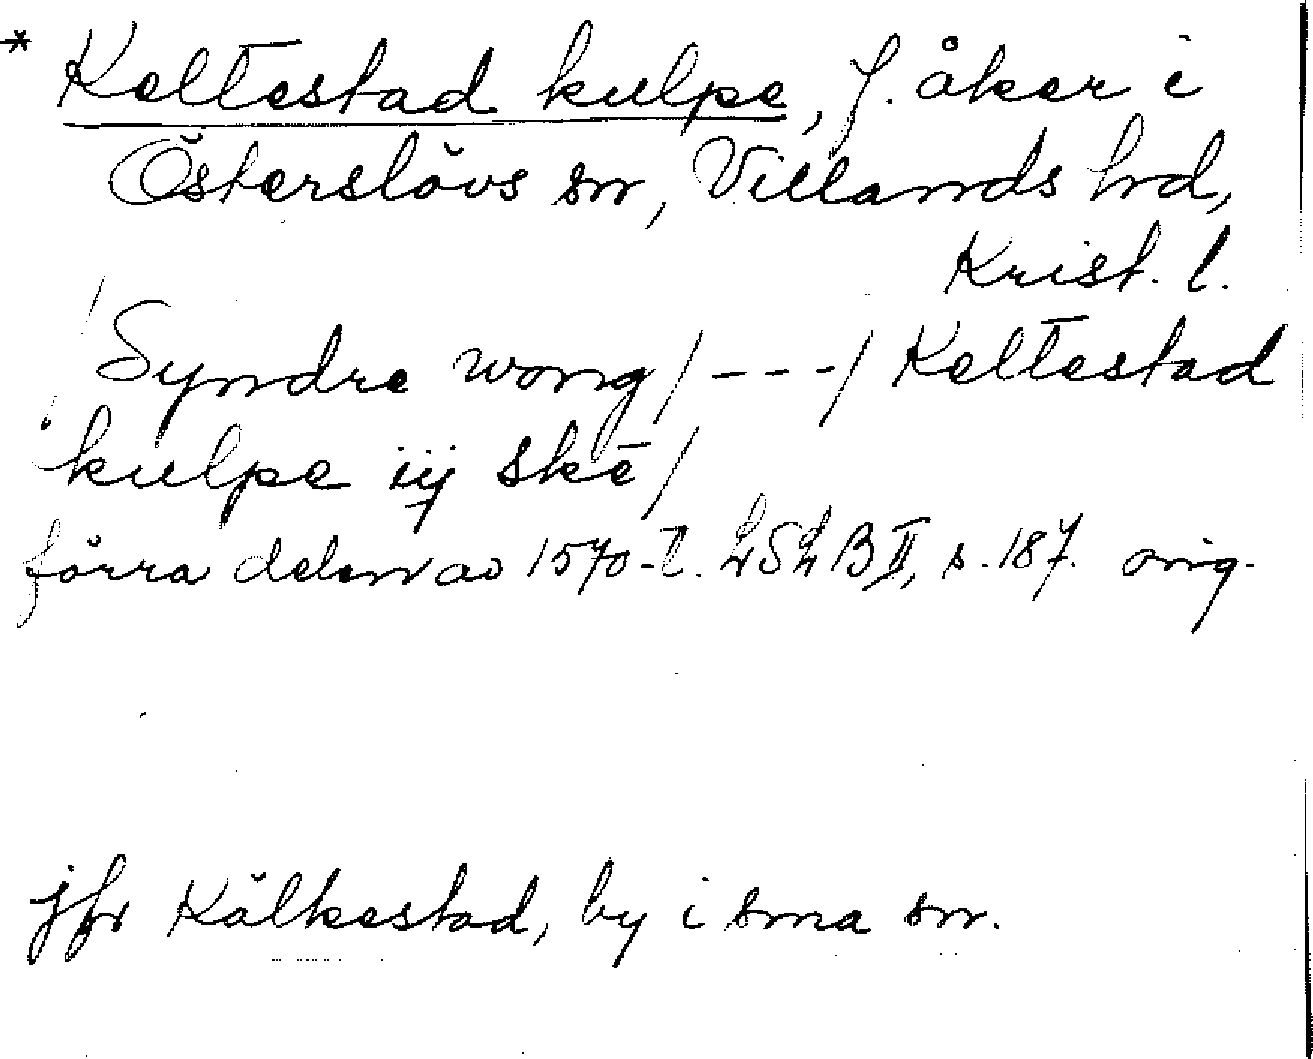 * Keltestad kulpe, f. åker i
Österslövs sn, Villands hd,
Krist. l.
/Syndre wong/---/Keltestad
kulpe iij skē/
förra delen av 1570-t. LSLB II, s. 187. orig.
jfr Kälkestad, by i sma sn.